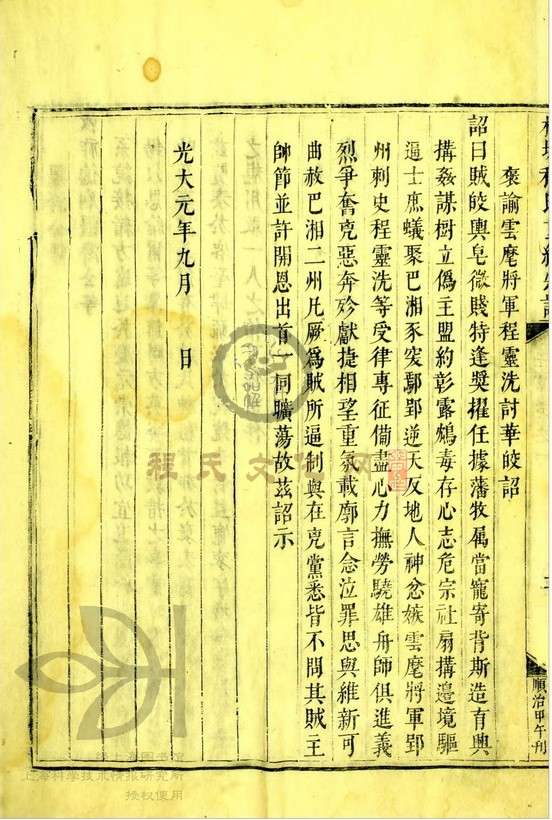 褒諭雲麾將軍程靈洗討華皎詔
詔曰賊皎輿皂微賤特逢獎擢任據藩牧屬當寵寄背斯造育興
搆姦謀樹立僞主盟約彰露鴆毒存心志危宗社扇搆邊境驅
逼士庶蟻聚巴湘豕突鄢郢逆天反地人神忿嫉雲麾將軍郢
州刺史程靈洗等受律專征備盡心力撫勞驍雄舟師俱進義
烈爭奮克惡奔殄獻捷相望重氛載廓言念泣罪思與維新可
曲赦巴湘二州凡厥爲賊所逼制與在兇黨悉皆不問其賊主
帥節並許開恩出首一同曠蕩故茲詔示
光大元年九月 日
順治甲午刊
程氏文化网
上海图书馆
上海科学技术情报研究所
授权使用